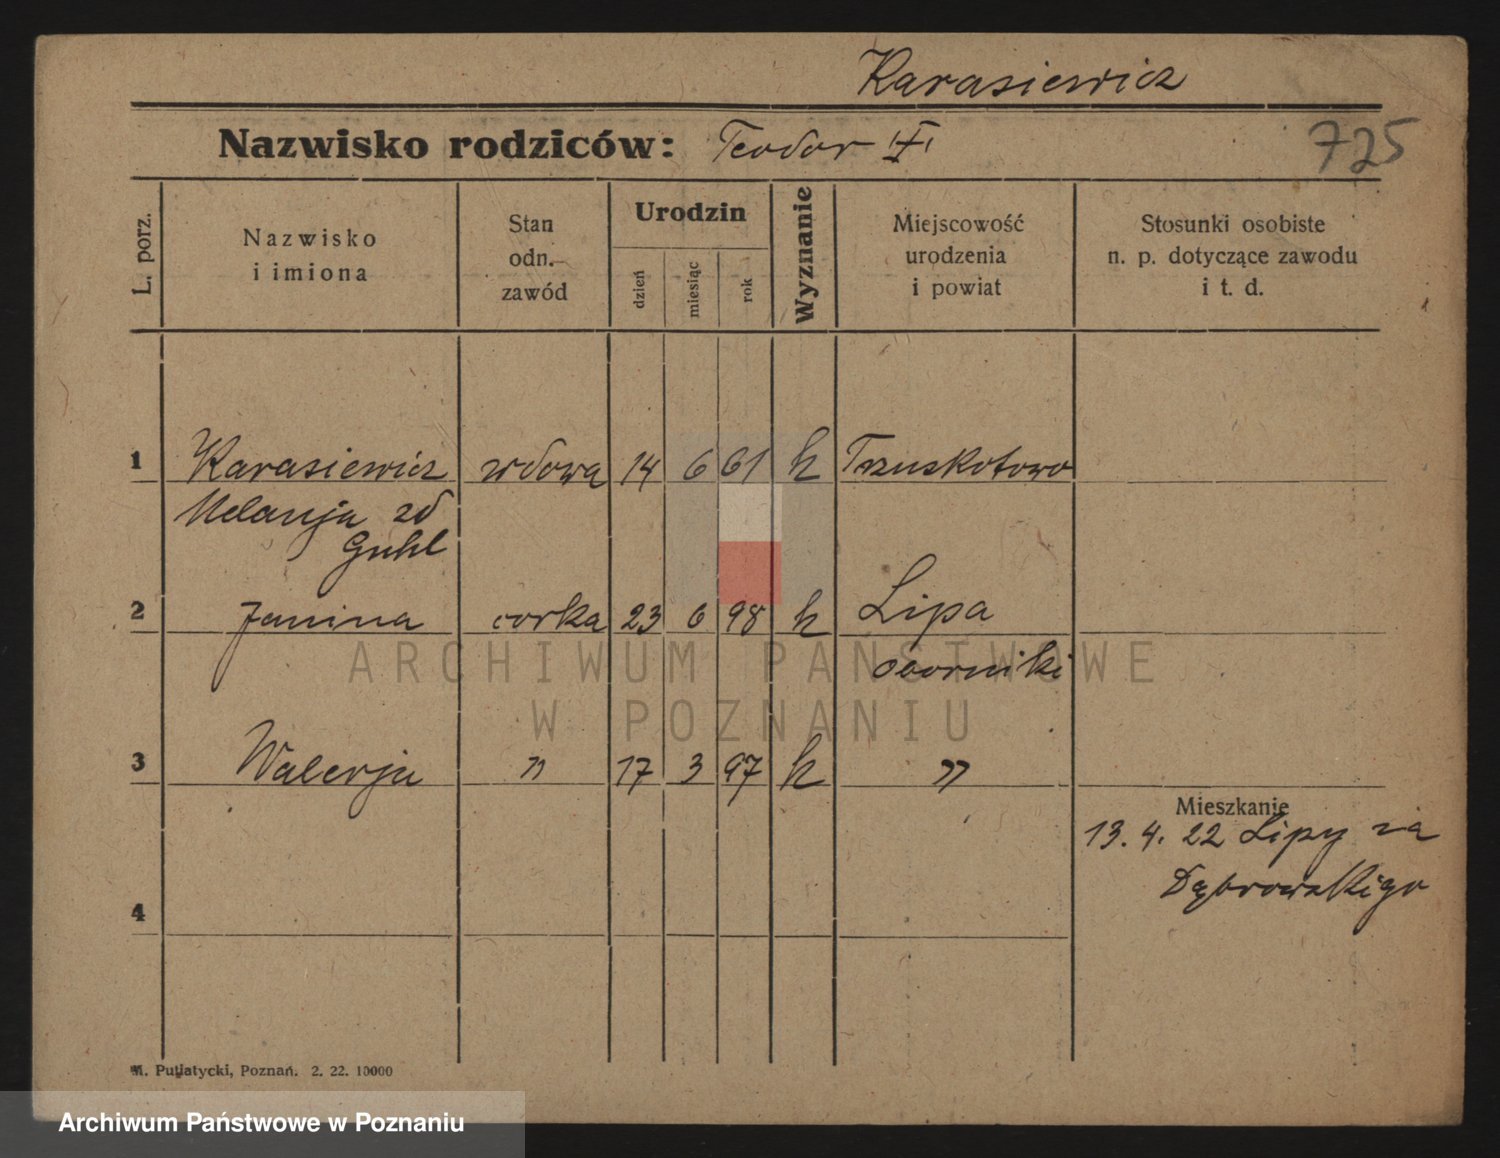 Karasiewicz
Nazwisko rodziców: Teodor
725
L. porz.
Nazwisko i imiona
Stan odn. zawód
Urodzin
dzień miesiąc rok
Wyznanie
Miejscowość urodzenia i powiat
Stosunki osobiste n. p. dotyczące zawodu i t. d.
1 Karasiewicz wdowa 14 6 61 k Trzuskotowo
Melanja zd
Guhl
2 Janina corka 23 6 98 k Lipa
Oborniki
3 Walerja " 17 3 97 k "
Mieszkanie
13. 4. 22 Lipy za
Dąbrowskigo
4
M. Putiatycki, Poznań. 2. 22. 10000
ARCHIWUM PAŃSTWOWE
W POZNANIU
Archiwum Państwowe w Poznaniu